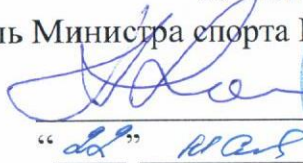 ль Министра спорта
“ 22 ”